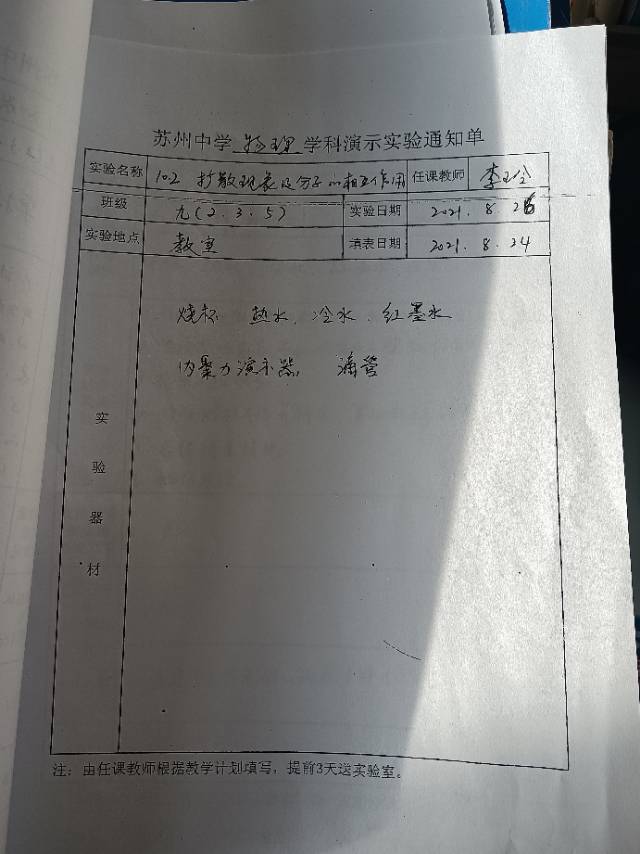 苏州中学 物理 学科演示实验通知单
实验名称 10.2 扩散现象及分子的相互作用 任课教师 李玉今
班级 九(2.3.5) 实验日期 2021.8.26
实验地点 教室 填表日期 2021.8.24
烧杯 热水、冷水、红墨水
内聚力演示器 滴管
实验器材
注：由任课教师根据教学计划填写，提前3天送实验室。